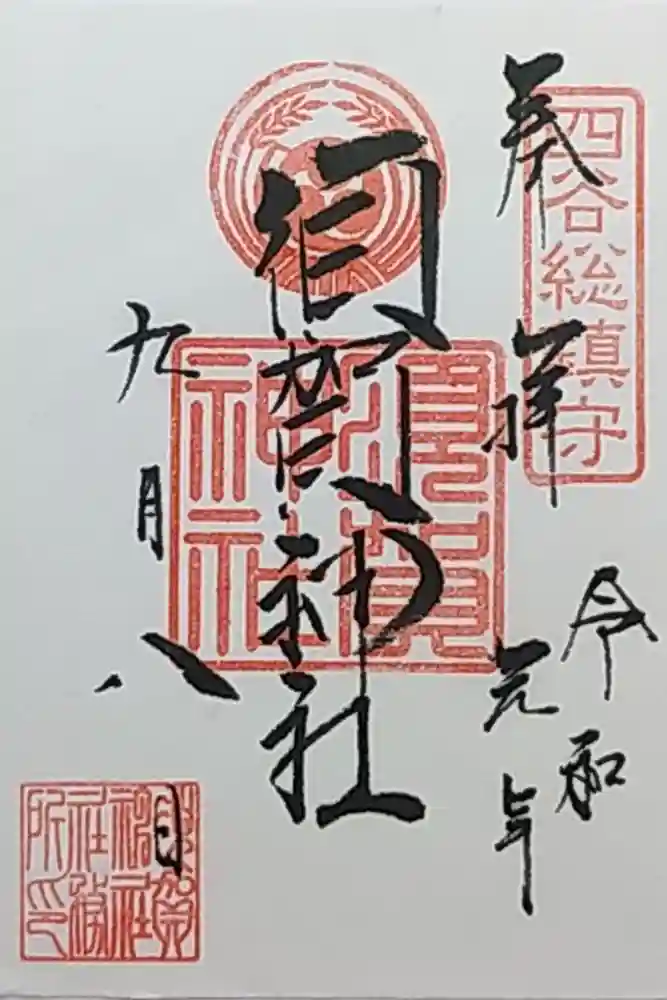 四谷総鎮守
奉拝
令和
元年
須賀神社
須賀
神社
九月八日
須賀
神社
社務
所印